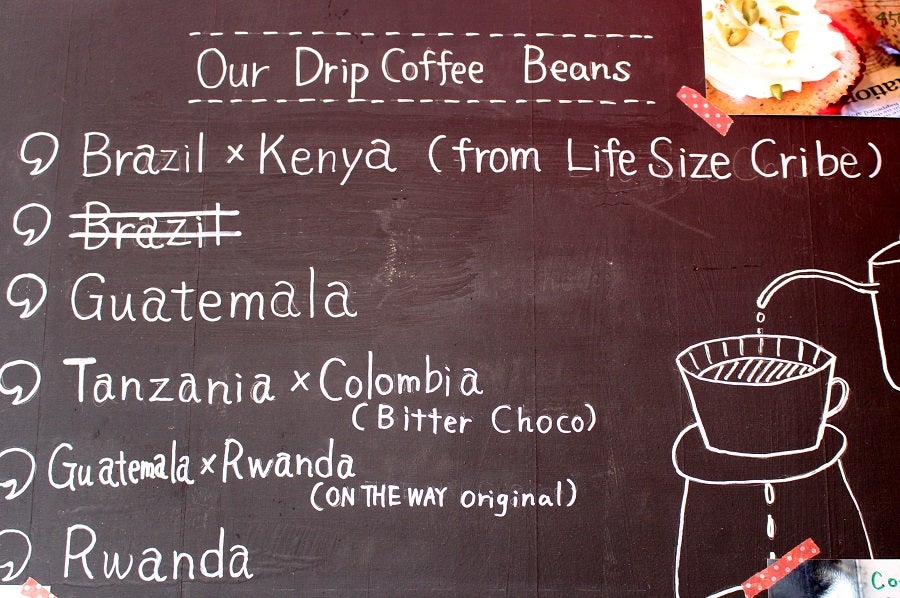 Our Drip Coffee Beans
Brazil × Kenya (from Life Size Cribe)
Brazil
Guatemala
Tanzania × Colombia
(Bitter Choco)
Guatemala × Rwanda
(ON THE WAY original)
Rwanda